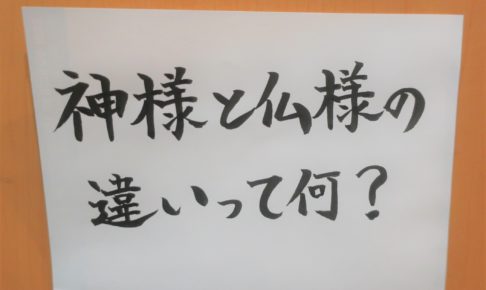 神様と仏様の
違いって何？